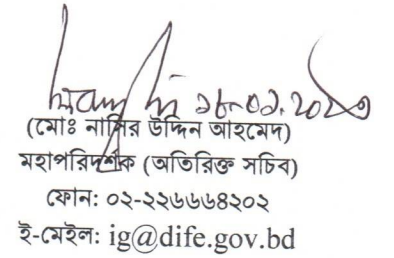 ১৮-০১.২০২৩
(মোঃ নাসির উদ্দিন আহমেদ)
মহাপরিদর্শক (অতিরিক্ত সচিব)
ফোন: ০২-২২৬৬৬৪২০২
ই-মেইল: ig@dife.gov.bd